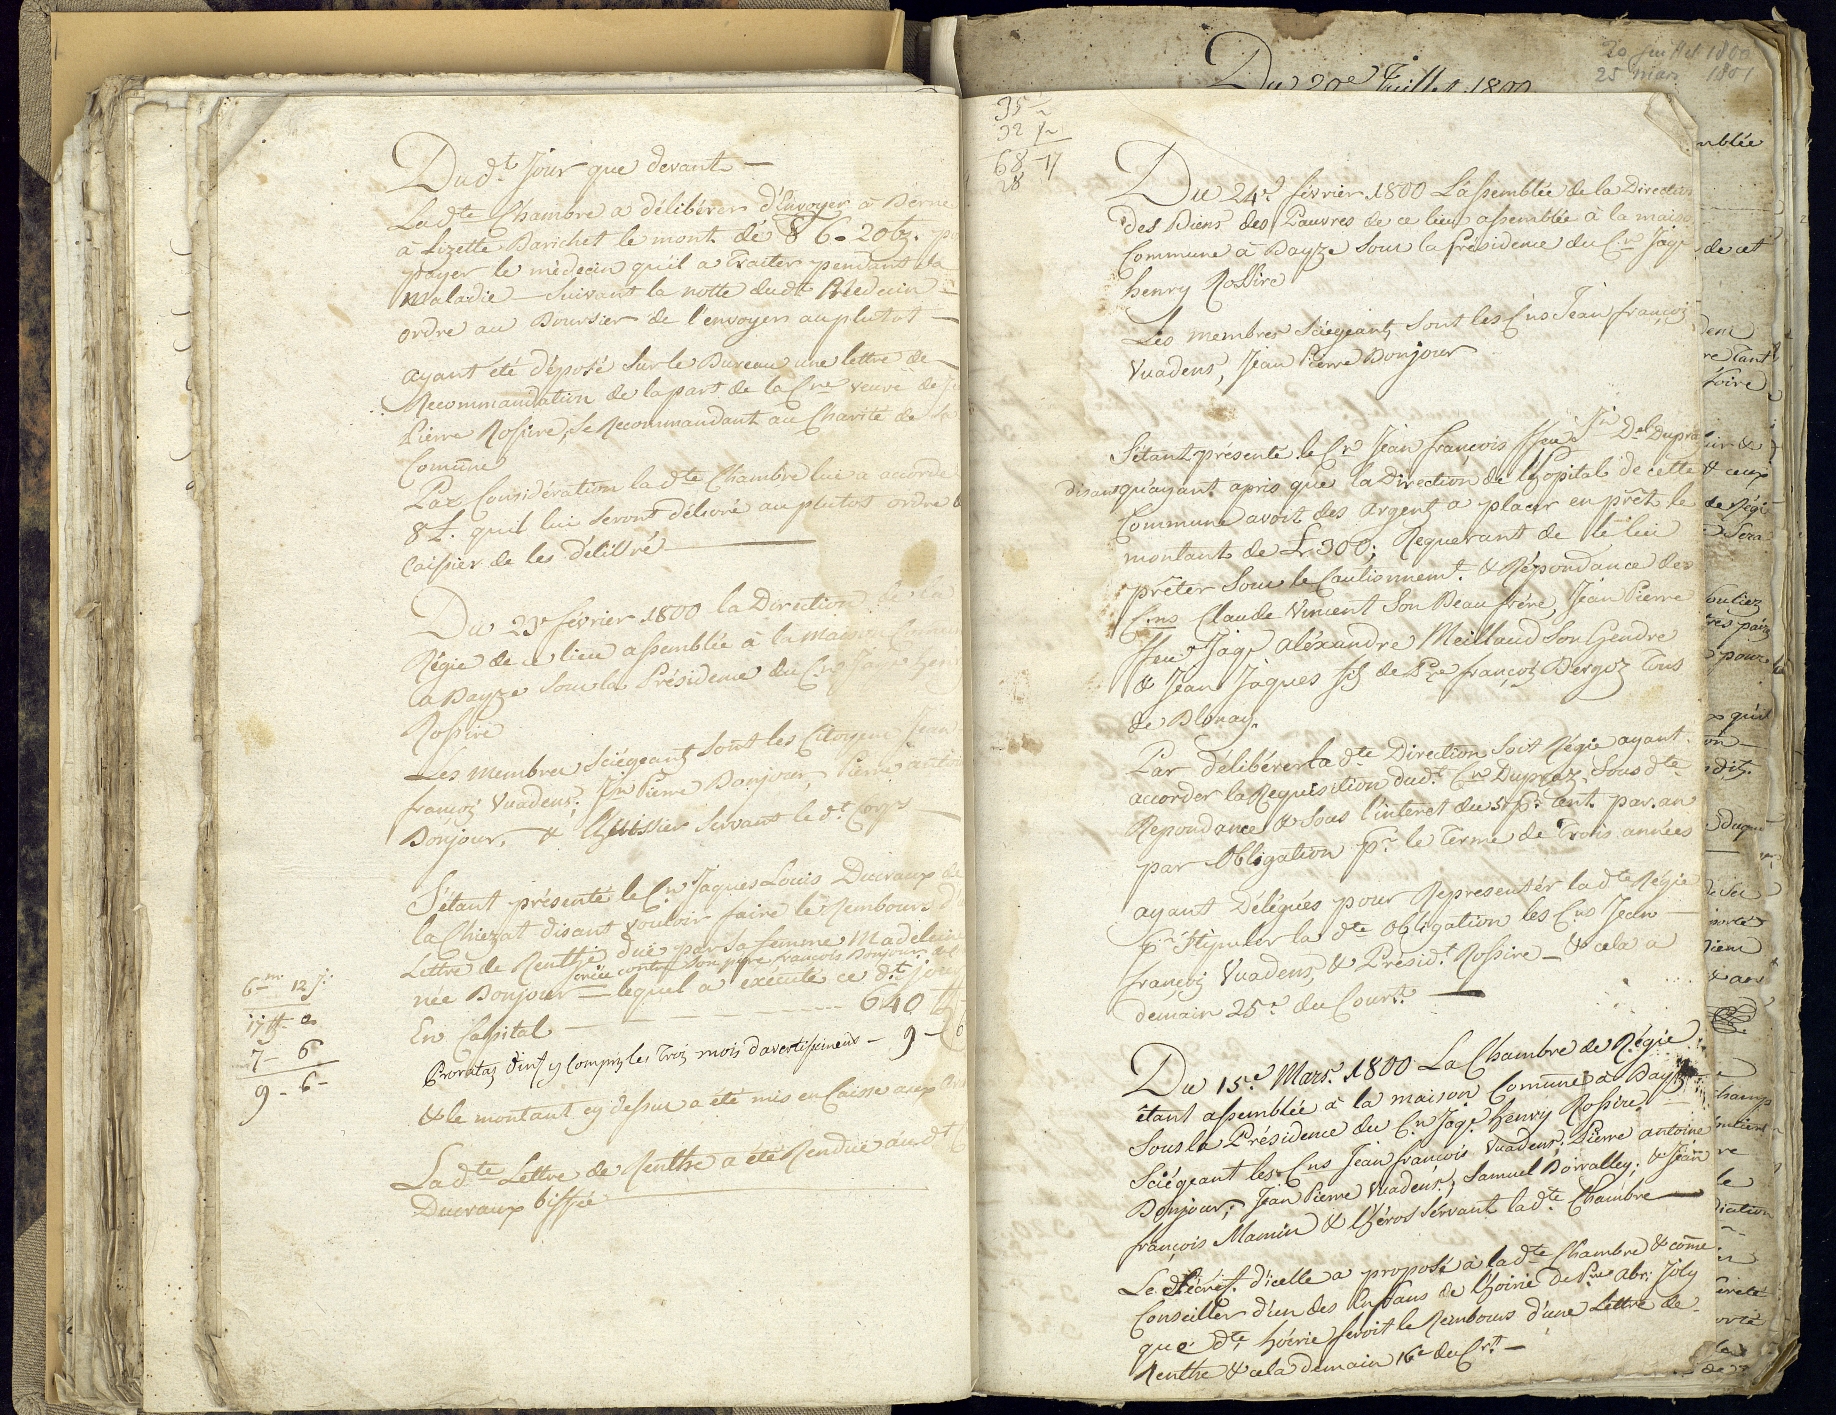 Dud.t Jour que devant —
Lad.te Chambre a délibérer d'Envoyer à Berne
à Lizette Barichet le mont. dé 6 - 20 bz.
payer le médecin qu'il a Traiter pendant sa
Maladie — Suivant la notte dudt Medecin —
ordre au Boursier de l'envoyer auplutot —
ayant été déposé Sur le Bureau une lettre de
Recommandation de la part de la C.ne veuve de
Pierre Rossire, Se Recommandant au Charité de
Comune
Par Considération la d.te Chambre lui a accordé
8 L. quil lui Seront délivré au plutot ordre
Caissier de les délivré
Du 23.e février 1800 la Direction de la
Régie de ce lieu assemblée à la maison Commune
a Bayze Sous la Présidence du C.n Jaq.e Henri
Rossire
Les Membres Sciégeant Sont les Citoyens Jean
françoi Vuadens, J.n Pierre Bonjour, Pierre antoine
Bonjour, & l'huissier Servant le d.t Corps
S'étant présenté le C.n Jaques Louis Ducraux de
la Chiezat disant vouloir faire le Rembours. d
Lettre de Renthe düe par Sa femme Madeleine
créée contre Son père françois Bonjour
née Bonjour = lequel a exécuté ce d.t jour
6.m 12 j.
En Capital — 640
17 ff. 2
Proratas d'int. y Compris les Trois mois davertissement — 9 - 6
7 - 6
9 - 6 -
& le montant cy dessus a été mis en Caisse aux
La d.te Lettre de Renthe a été Rendüe aud.t
Ducraux biffée
20 Juillet 1800
25 mars 1801
Du 20.e Juillet 1800
35
32
68 17
28
Du 24.e février 1800 L'assemblée de la Direction
des Biens des Pauvres de ce lieu assemblée à la maison
Commune à Bayze Sous la Présidence du C.n Jaq.e
henry Rossire
Les membres Sciégeant, Sont les C.ns Jean françoi
Vuadens, Jean Pierre Bonjour
S'étant présenté le C.n Jean françois ffeu J.n D.el Dupraz
disant qu'ayant apris que la Direction de l'hopital de cette
Commune avoit des Argent a placer en prêt le
montant de L. 300; Requerant de le lui
prêter Sous le Cautionnem.t & Répondance des
C.ns Claude Vincent Son Beau frère, Jean Pierre
ffeu Jaq.e Aléxandre Meillaud Son Gendre
& Jean Jaques fils de P.re françoi Bergoz Tous
de Blonay.
Par délibérer la d.te Direction Soit Régie ayant
accorder la Requisition dud.t C.n Dupraz, Sous d.te
Repondance & Sous l'interet du 5 p.r Cent par an
par Obligation p.r le Terme de Trois années
ayant Délégués pour Representér la d.te Régie
p.r Stipuler la d.te Obligation les C.ns Jean —
françoi Vuadens, & Présid.t Rossire — & cela a
demain 25.e du Cour.t —
Du 15.e Mars 1800 La Chambre de Régie
étant assemblée à la maison Comune à Bayze
Sous la Présidence du C.n Jaq.e Henry Rossire,
Sciégeant les C.ns Jean françois Vuadens, Pierre antoine
Bonjour; Jean Pierre Vuadens, Samuel Boiralley; & Jean
françois Mamin & l'héros Servant la d.te Chambre —
Le Sécrét. d'icelle a proposé à la d.te Chambre & come
Conseiller d'un des Enfans de l'hoirie de P.re Abr: Joly
que d.te hoirie feroit le Rembours d'une Lettre de
Renthe & cela demain 16.e du C.rt —